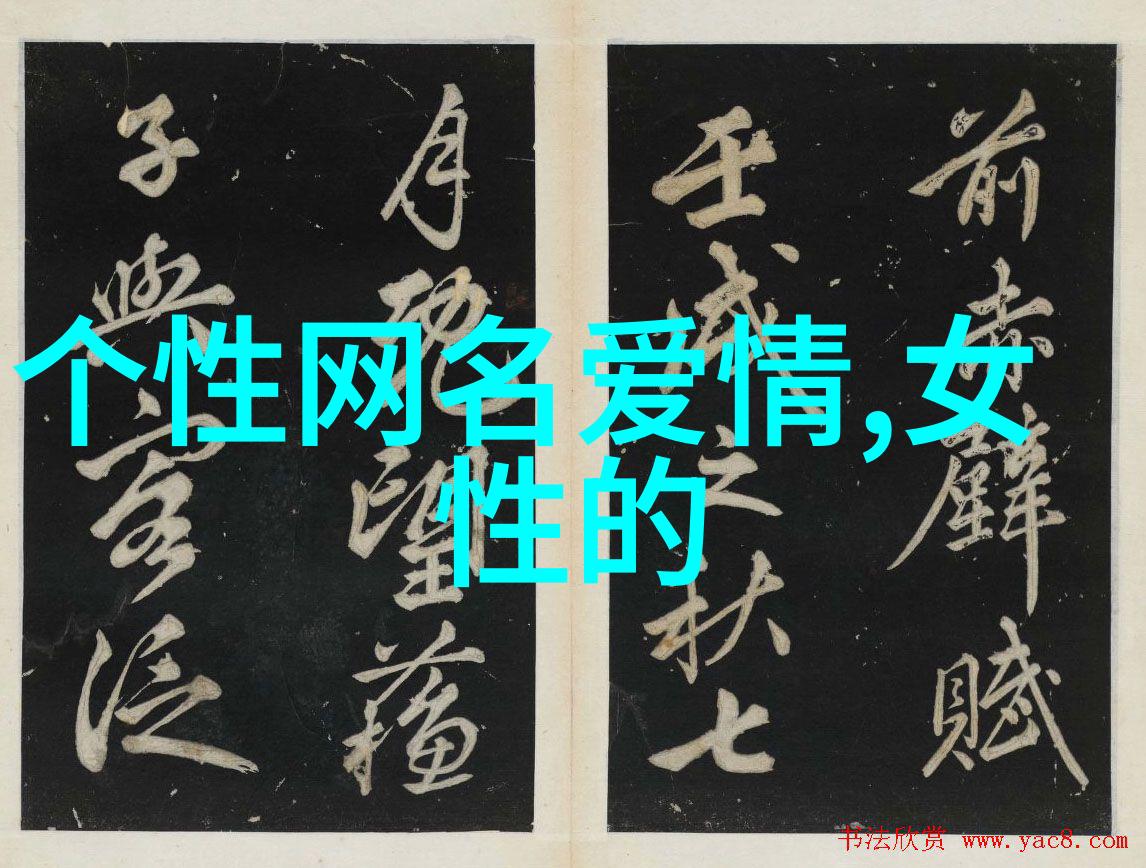 前赤壁賦
壬戌之秋七
月既望蘇
子與客泛
个性网名爱情,女
性的
书法欣赏 www.yac8.com